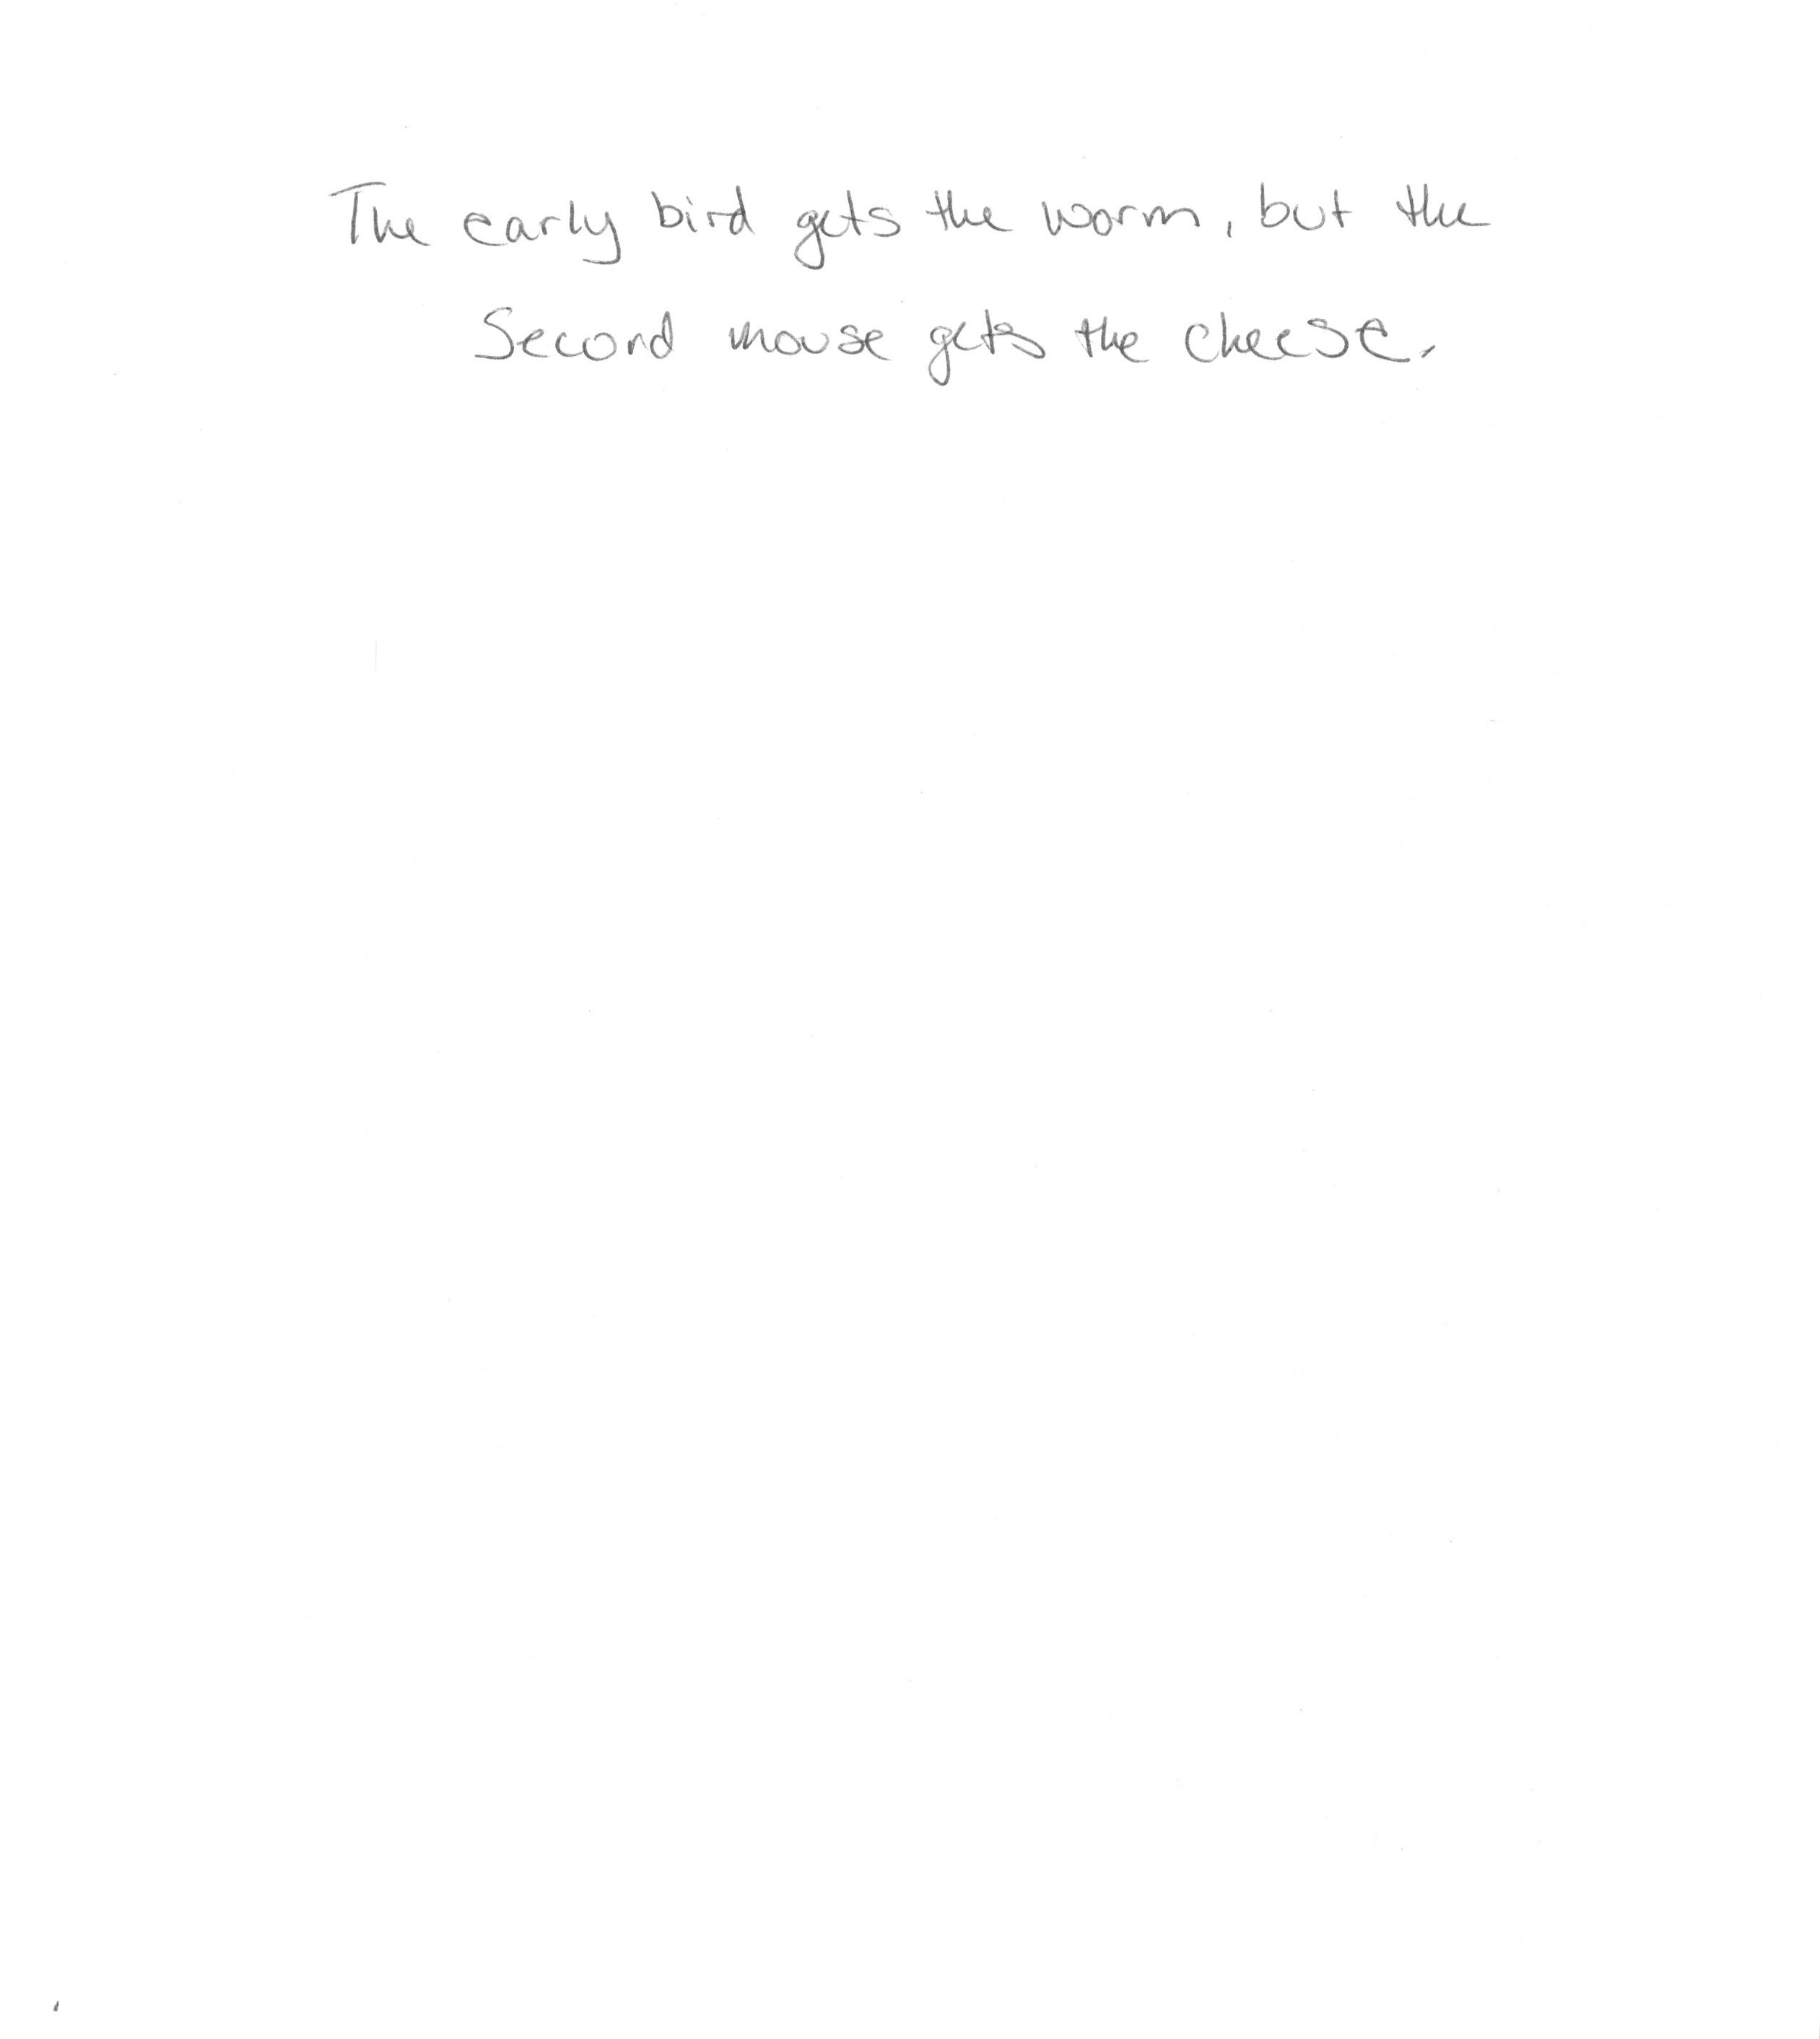 The early bird gets the worm, but the
Second mouse gets the cheese.